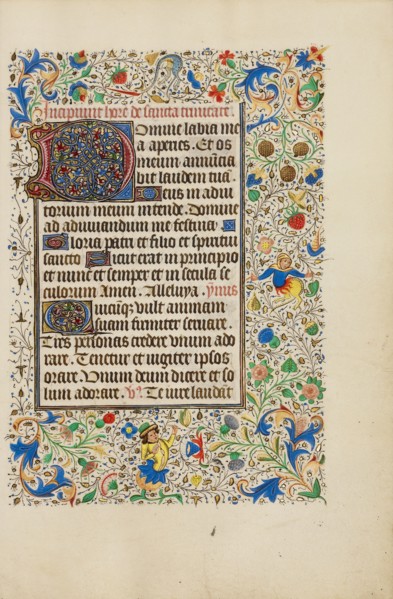 Incipiunt hore de sancta trinitate.
Domine labia me
a aperies. Et os
meum annūcia
bit laudem tuā.
Deus in adiu
torium meum intende. Domine
ad adiuvandum me festina.
Gloria patri et filio et spiritui
sancto Sicut erat in principio
et nunc et semper et in secula se
culorum Amen. Alleluya. ymus
Quicūq; vult animam
suam firmiter servare.
Tres personas credere vnum ado
rare. Tenetur et iugiter ipsos
orare. Vnum deum dicere et so
lum adorare. V. Te iure laudāt